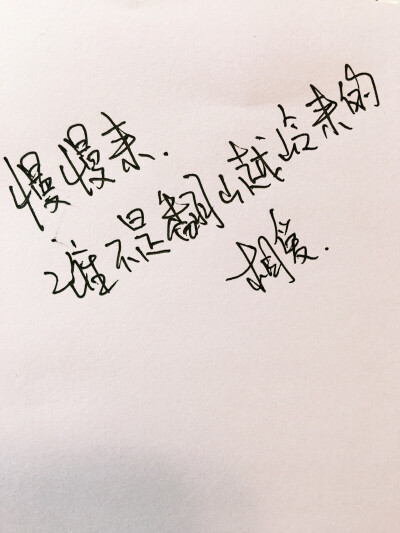 慢慢来.
谁不是翻山越岭来的
相爱.